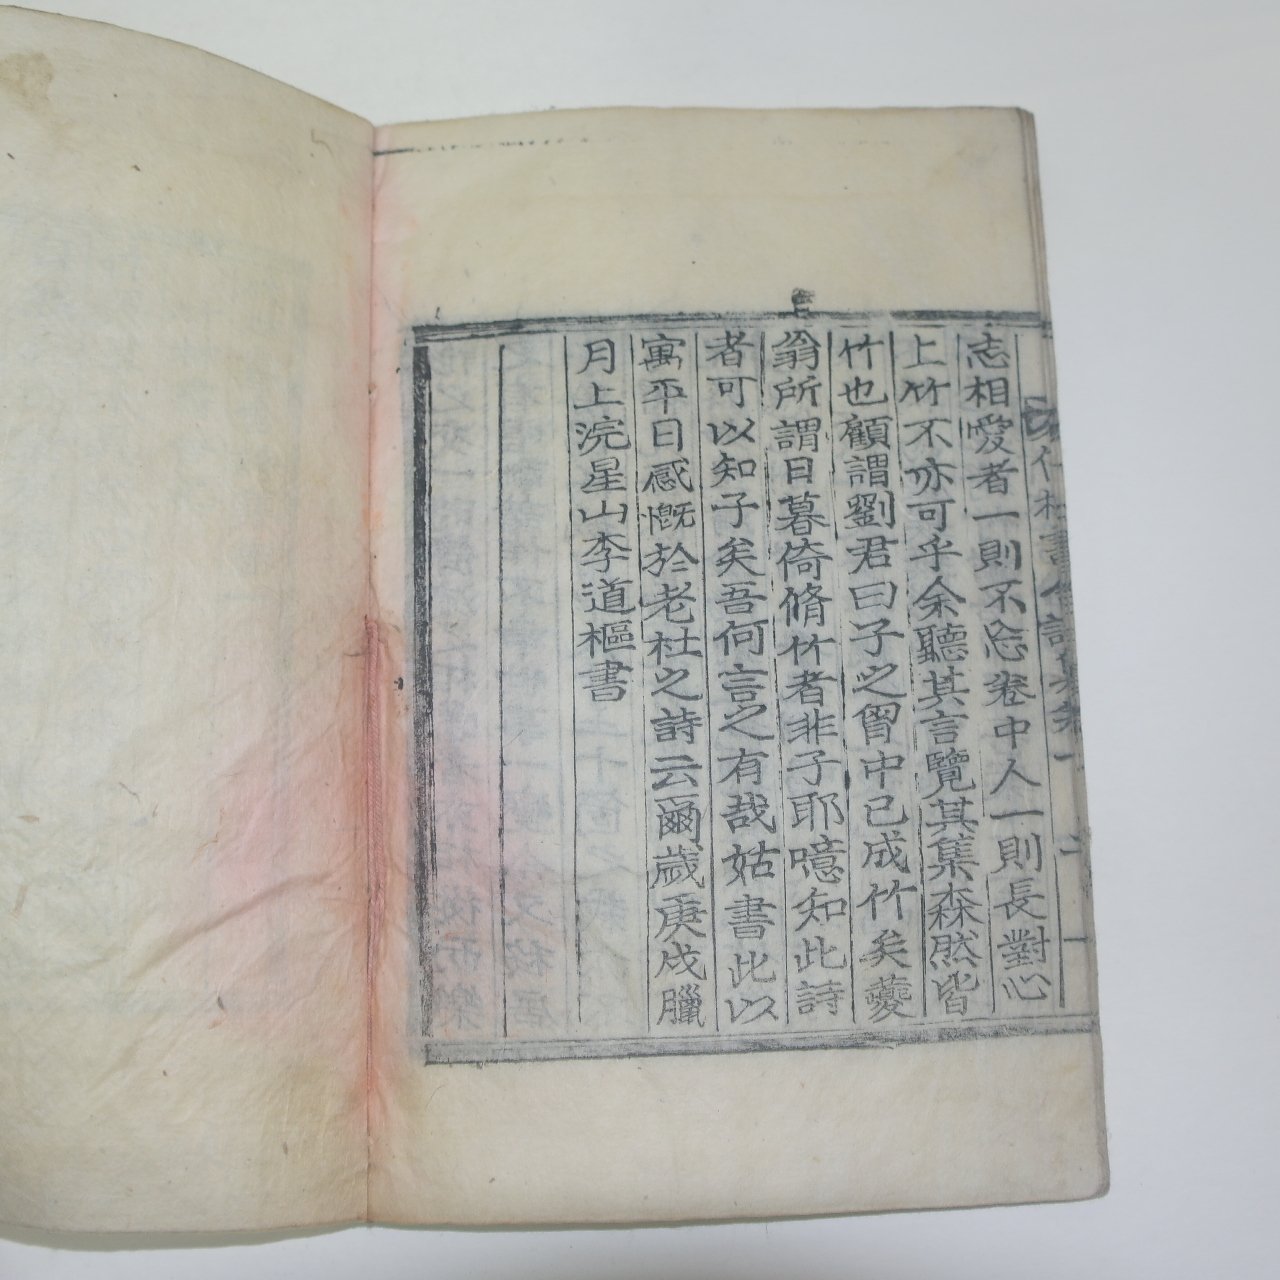 志相愛者一則不忘卷中人一則長對心
上竹不亦可乎余聽其言覽其集森然皆
竹也顧謂劉君曰子之胷中已成竹矣夔
翁所謂日暮倚脩竹者非子耶噫知此詩
者可以知子矣吾何言之有哉姑書此以
寓平日感慨於老杜之詩云爾歲庚戌臘
月上浣星山李道樞書